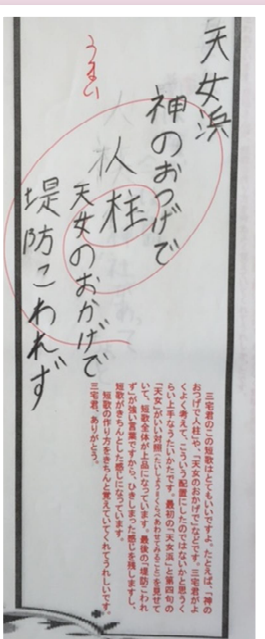 天女浜
神のおつげで
人柱
天女のおかげで
堤防こわれず
うまい
三宅君のこの短歌はとてもいいですよ。たとえば、「神の
おつげで人柱」や、「天女のおかげで」などです。三宅君がよ
くよく考えて、こういう配置にしたのではないかと思うく
らい上手なうたいかたです。最初の「天女浜」と第四句の
「天女」がいい対照（たいしょう＝くらべあわせてみること）を見せて
いて、短歌全体が上品になっています。最後の「堤防こわれ
ず」が強い言葉ですから、ひきしまった感じを残しますし、
短歌がきちんとした感じになっています。
短歌の作り方をきちんと覚えていてくれてうれしいです。
三宅君、ありがとう。